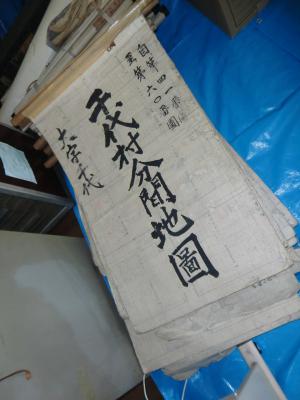 自第四一号
至第六〇号圖
千代村分間地圖
大字千代